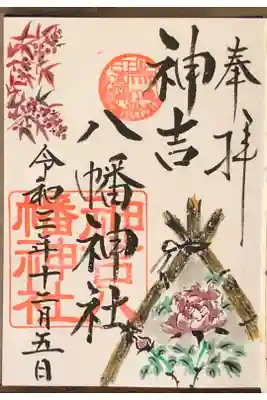 奉拝
神吉
八幡神社
令和三年十一月五日
神吉八
幡神社